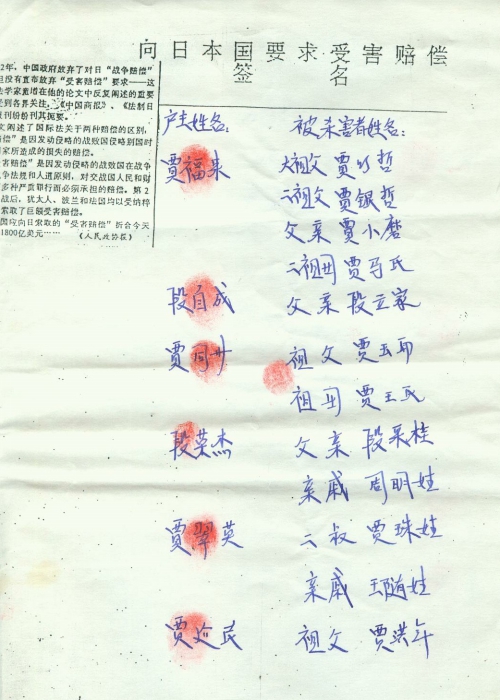 向日本国要求受害赔偿
签名
2年，中国政府放弃了对日“战争赔偿”
但没有宣布放弃“受害赔偿”要求——这
法学家童增在他的论文中反复阐述的重要
受到各界关注。《中国商报》、《法制日
报刊纷纷刊其扼要。
文阐述了国际法关于两种赔偿的区别，
赔偿”是因发动侵略的战败国侵略到国时
国家所造成的损失的赔偿。
受害赔偿”是因发动侵略的战败国在战争
争法规和人道原则，对交战国人民和财
多种严重罪行而必须承担的赔偿。第2
战后，犹太人、波兰和法国均以受纳粹
索取了巨额受害赔偿。
国应向日索取的“受害赔偿”折合今天
1800亿美元…… （人民政协报）
户主姓名: 被杀害者姓名:
贾福来 大祖父 贾哲
二祖父 贾银哲
父亲 贾小磨
二祖母 贾马氏
段自成 父亲 段立家
贾同 祖父 贾玉
祖母 贾王氏
段荣杰 父亲 段采桂
亲戚 周明娃
贾翠英 二叔 贾珠娃
亲戚 王随娃
贾民 祖父 贾洪年